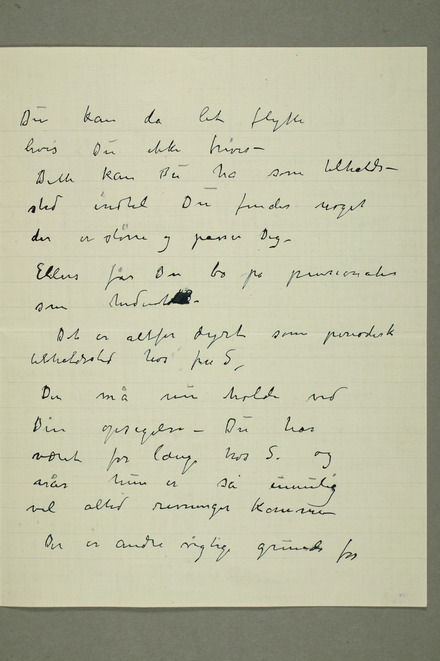 Du kan da let flytte
hvis Du ikke trives –
Dette kan Du ha som tilholds–
sted indtil Du finder noget
der er større og passer Dig –
Ellers får Du bo på pensionater
som
Det er altfor dyrt som periodisk
tilholdssted hos fru S,
Du må nu holde ved
Din opsigelse – Du har
været for længe hos S. og
når hun er så umulig
vil altid rivninger komme
Der er andre vigtige grunde for